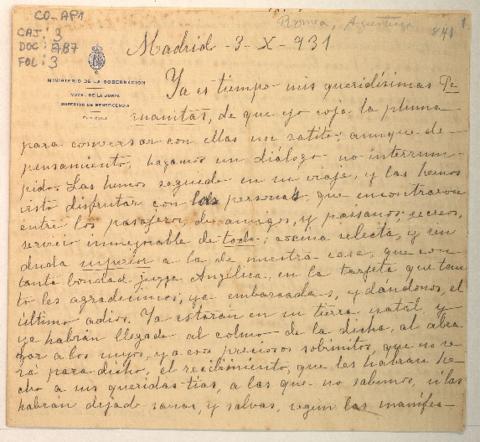 CO-AP1
CAJ: 3
DOC: 787
FOL: 3
Romea, Agustina
841
1.
MINISTERIO DE LA GOBERNACIÓN
VOCAL DE LA JUNTA
SUPERIOR DE BENEFICENCIA
Madrid - 3 - X - 931
Ya es tiempo mis queridísimas
manitas, de que yo coja la pluma
para conversar con ellas un ratito; aunque de
pensamiento, hagamos un diálogo no interrum-
pido. Las hemos seguido en su viaje, y las hemos
visto disfrutar con las personas, que encontraron
entre los pasajeros, de amigos, y paisanos, recreos,
servicio inmejorable de todo, cocina selecta, y sin
duda superior a la de nuestra casa, que con
tanta bondad juzga Angélica, en la tarjeta que tan-
to les agradecimos, ya embarcadas, y dándonos, el
último adios. Ya estarán en su tierra natal, y
ya habrán llegado al colmo de la dicha, al abra-
zar a los suyos, y a esos preciosos sobrinitos, que no se-
rá para dicho, el recibimiento, que les habrán he-
cho a mis queridas tías, a las que no sabemos, si las
habrán dejado sanas, y salvas, según las manifes-